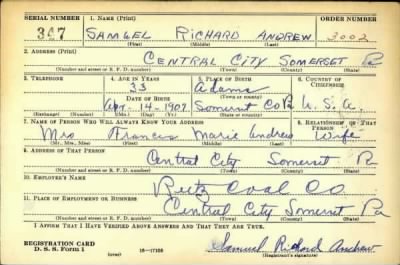 SERIAL NUMBER 1. NAME (Print) ORDER NUMBER
347 SAMUEL RICHARD ANDREW 3002
(First) (Middle) (Last)
2. ADDRESS (Print)
CENTRAL CITY SOMERSET Pa
(Number and street or R. F. D. number) (Town) (County) (State)
3. TELEPHONE 4. AGE IN YEARS 5. PLACE OF BIRTH 6. COUNTRY OF CITIZENSHIP
33 Adams
DATE OF BIRTH (Town or county)
Apr. 14 - 1907 Somerset Co U. S. A.
(Exchange) (Number) (Mo.) (Day) (Yr.) (State or country)
7. NAME OF PERSON WHO WILL ALWAYS KNOW YOUR ADDRESS 8. RELATIONSHIP OF THAT PERSON
Mrs Frances Marie Andrew Wife
(Mr., Mrs., Miss) (First) (Middle) (Last)
9. ADDRESS OF THAT PERSON
Central City Somerset Pa
(Number and street or R. F. D. number) (Town) (County) (State)
10. EMPLOYER'S NAME
Reitz Coal Co
11. PLACE OF EMPLOYMENT OR BUSINESS
Central City Somerset Pa
(Number and street or R. F. D. number) (Town) (County) (State)
I AFFIRM THAT I HAVE VERIFIED ABOVE ANSWERS AND THAT THEY ARE TRUE.
REGISTRATION CARD
D. S. S. Form 1 (over) 16-17105 Samuel Richard Andrew
(Registrant's signature)